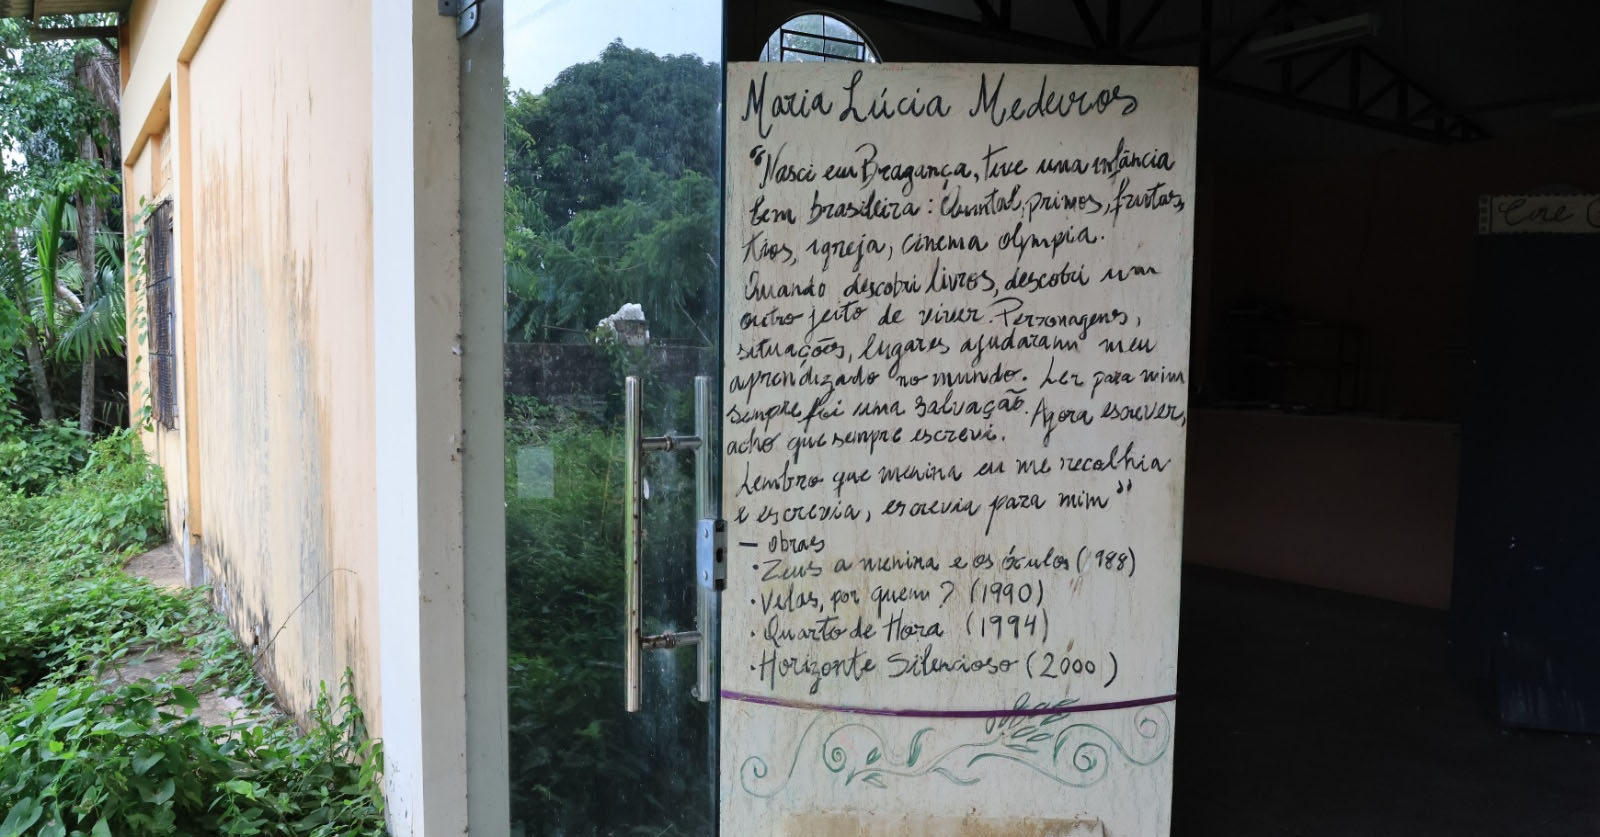 Maria Lúcia Medeiros
"Nasci em Bragança, tive uma infância
bem brasileira: Quintal, primos, frutas,
tios, igreja, cinema olympia.
Quando descobri livros, descobri um
outro jeito de viver. Personagens,
situações, lugares ajudaram meu
aprendizado no mundo. Ler para mim
sempre foi uma salvação. Agora escrever,
acho que sempre escrevi.
Lembro que menina eu me recolhia
e escrevia, escrevia para mim"
— obras
• Zeus a menina e os óculos (1988)
• Velas, por quem? (1990)
• Quarto de Hora (1994)
• Horizonte Silencioso (2000)